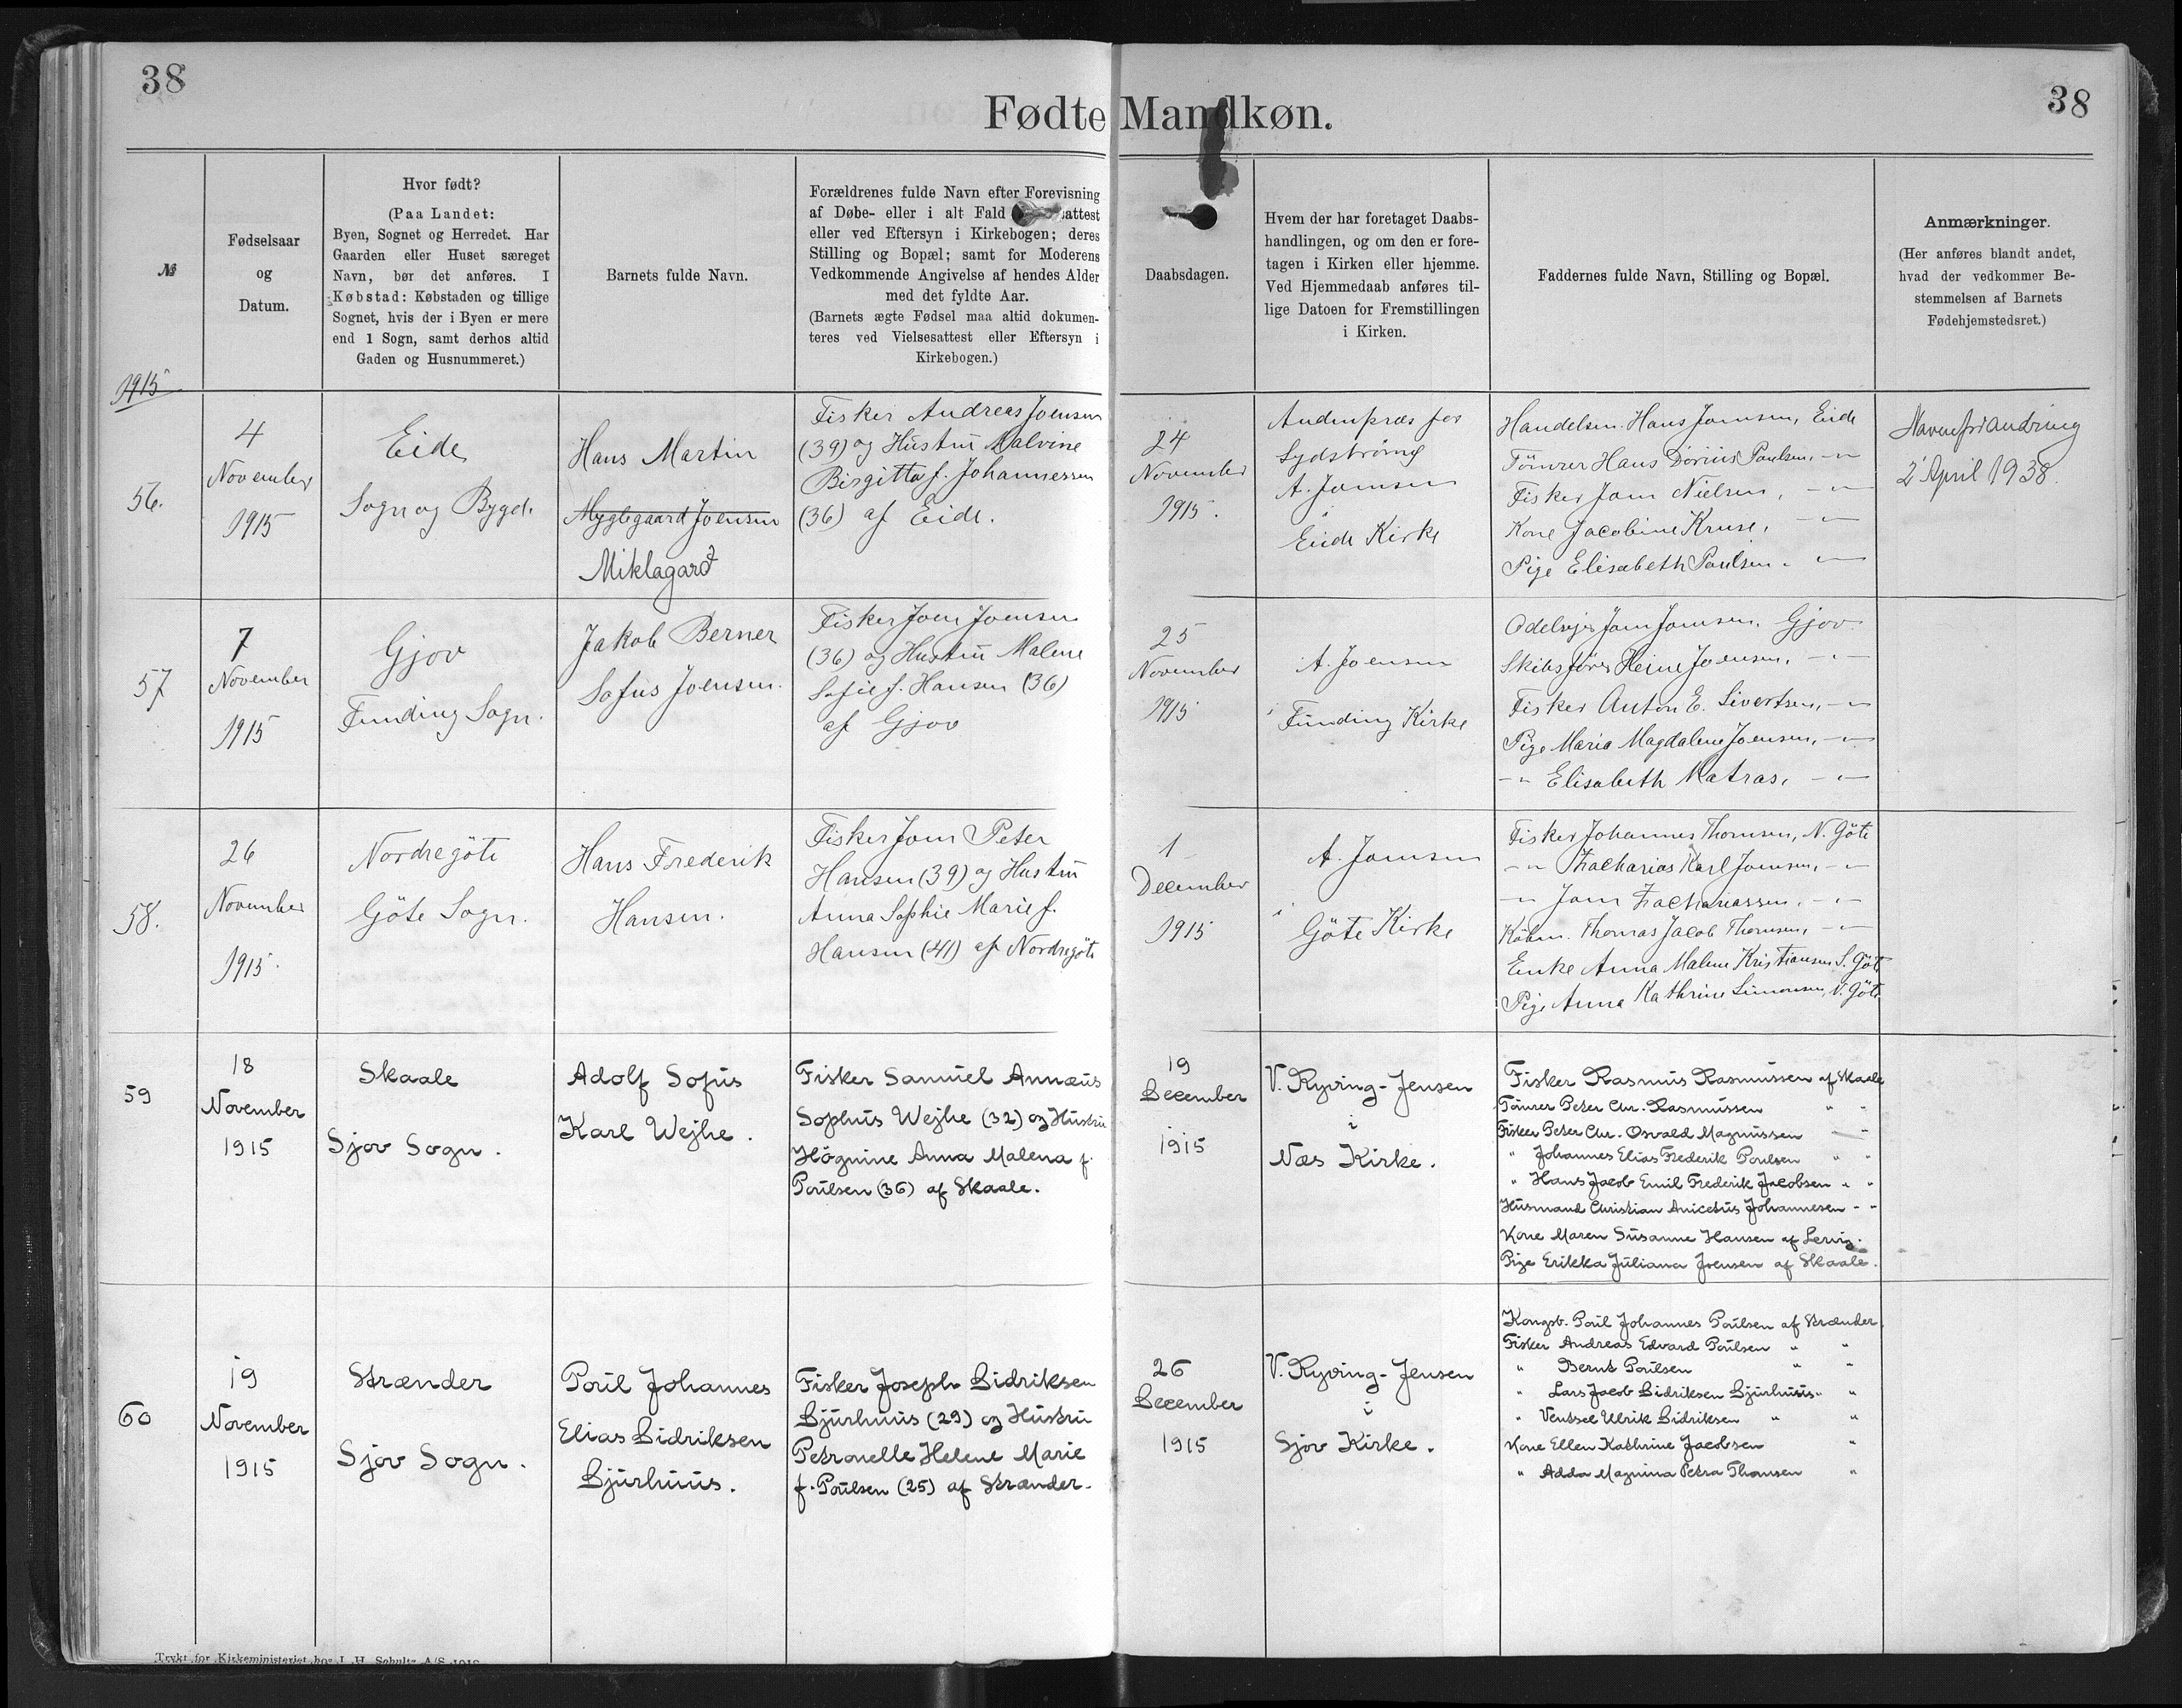 38
38
Fødte Mandkøn.
№
Fødselsaar
og
Datum.
Hvor født?
(Paa Landet:
Byen, Sognet og Herredet. Har
Gaarden eller Huset særeget
Navn, bør det anføres. I
Købstad: Købstaden og tillige
Sognet, hvis der i Byen er mere
end 1 Sogn, samt derhos altid
Gaden og Husnummeret.)
Barnets fulde Navn.
Forældrenes fulde Navn efter Forevisning
af Døbe- eller i alt Fald attest
eller ved Eftersyn i Kirkebogen; deres
Stilling og Bopæl; samt for Moderens
Vedkommende Angivelse af hendes Alder
med det fyldte Aar.
(Barnets ægte Fødsel maa altid dokumen-
teres ved Vielsesattest eller Eftersyn i
Kirkebogen.)
Daabsdagen.
Hvem der har foretaget Daabs-
handlingen, og om den er fore-
tagen i Kirken eller hjemme.
Ved Hjemmedaab anføres til-
lige Datoen for Fremstillingen
i Kirken.
Faddernes fulde Navn, Stilling og Bopæl.
Anmærkninger.
(Her anføres blandt andet,
hvad der vedkommer Be-
stemmelsen af Barnets
Fødehjemstedsret.)
1915
56.
4
November
1915
Eide
Sogn og Bygd.
Hans Martin
Myglegaard Joensen
Miklagard
Fisker Andreas Joensen
(39) og Hustrü Malvine
Birgitta f. Johannessen
(36) af Eide.
24
November
1915.
Andenpræs for
Sydstrømø
A. Joensen
i
Eide Kirke
Handelsm. Hans Joensen, Eide
Tömrer Hans Dorius Poulsen, -"-
Fisker Joen Nielsen, -"-
Kone Jacobine Kruse, -"-
Pige Elisabeth Poulsen. -"-
Navneforandring
2' April 1938.
57
7
November
1915
Gjov
Funding Sogn.
Jakob Berner
Sofus Joensen.
Fisker Joen Joensen
(36) og Hustrü Malene
Sofie f. Hansen (36)
af Gjov
25
November
1915
A. Joensen
i Funding Kirke
Odelsejer Joen Joensen, Gjov.
Skibsfører Heine Joensen, -"-
Fisker Anton E. Sivertsen, -"-
Pige Maria Magdalene Joensen, -"-
-"- Elisabeth Matras, -"-
58.
26
November
1915.
Nordregöte
Göte Sogn.
Hans Frederik
Hansen.
Fisker Joen Peter
Hansen (39) og Hustrü
Anna Sophie Marie f.
Hansen (41) af Nordregöte
1
December
1915
A. Joensen
i
Göte Kirke
Fisker Johannes Thomsen, N. Göte
-"- Zacharias Karl Joensen, -"-
-"- Joen Zachariassen, -"-
Köbm. Thomas Jacob Thomsen, -"-
Enke Anna Malene Kristiansen S. Göte
Pige Anna Kathrine Simonsen, N. Göte
59
18
November
1915
Skaale
Sjov Sogn.
Adolf Sofus
Karl Wejhe.
Fisker Samuel Annæus
Sophus Wejhe (32) og Hustru
Högnine Anna Malena f.
Poulsen (36) af Skaale.
19
December
1915
V. Ryving-Jensen
i
Næs Kirke.
Fisker Rasmus Rasmussen af Skaale
Tömrer Peter Chr. Rasmussen " "
Fisker Peter Chr. Osvald Magnussen
" Johannes Elias Frederik Poulsen " "
" Hans Jacob Emil Frederik Jacobsen " "
Husmand Christian Anicetus Johannesen " "
Kone Maren Susanne Hansen af Lervig.
Pige Erikka Juliana Joensen af Skaale.
60
19
November
1915
Strænder
Sjov Sogn.
Poul Johannes
Elias Didriksen
Djurhuus.
Fisker Joseph Didriksen
Djurhuus (29) og Hustru
Petronelle Helene Marie
f. Poulsen (25) af Strænder.
26
December
1915
V. Ryving-Jensen
i
Sjov Kirke.
Kongsb. Poul Johannes Poulsen af Strænder.
Fisker Andreas Edvard Poulsen " "
" Bernt Poulsen " "
" Lars Jacob Didriksen Djurhuus " "
" Ventsel Ulrik Didriksen " "
Kone Ellen Kathrine Jacobsen "
" Adda Magnina Petra Thomsen "
Trykt for Kirkeministeriet hos J. H. Schultz A/S